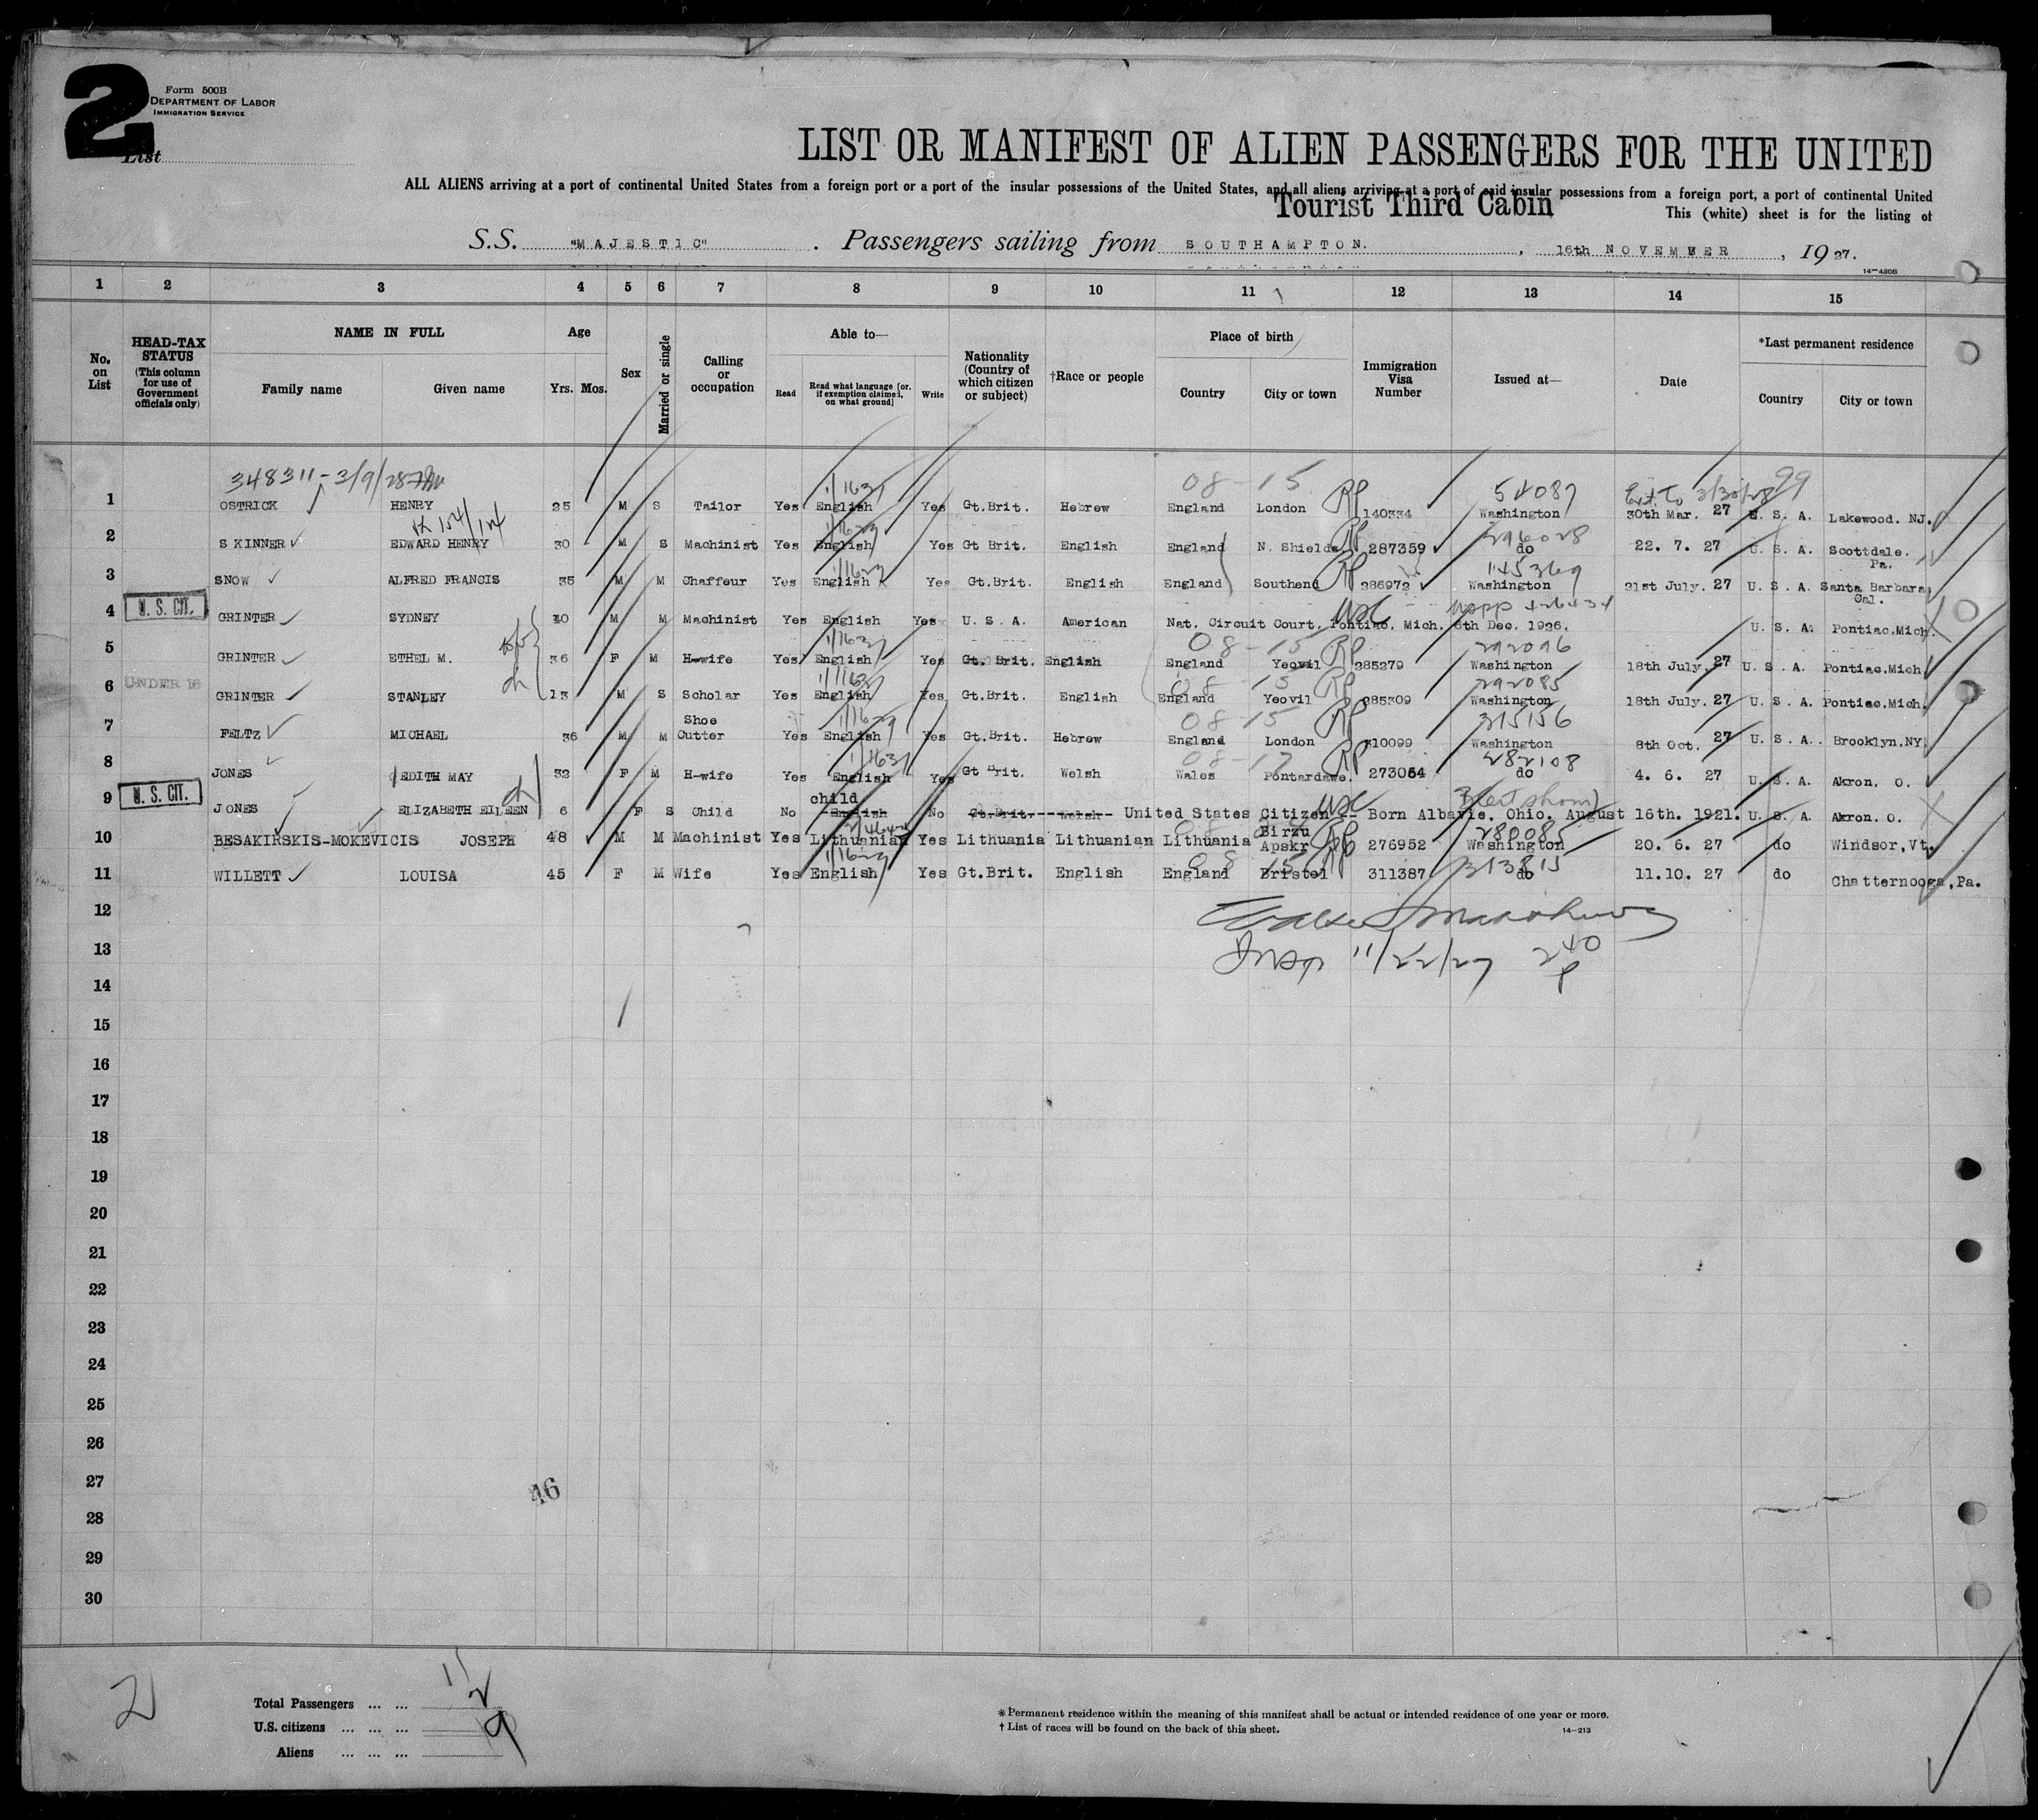 2
Form 500B
DEPARTMENT OF LABOR
IMMIGRATION SERVICE
List
LIST OR MANIFEST OF ALIEN PASSENGERS FOR THE UNITED
ALL ALIENS arriving at a port of continental United States from a foreign port or a port of the insular possessions of the United States, and all aliens arriving at a port of said insular possessions from a foreign port, a port of continental United
Tourist Third Cabin
This (white) sheet is for the listing of
S.S. "MAJESTIC" . Passengers sailing from SOUTHAMPTON. , 16th NOVEMBER , 1927.
14-430B
1 2 3 4 5 6 7 8 9 10 11 12 13 14 15
No. on List
HEAD-TAX STATUS (This column for use of Government officials only)
NAME IN FULL
Family name Given name
Age
Yrs. Mos.
Sex
Married or single
Calling or occupation
Able to—
Read Read what language [or, if exemption claimed, on what ground] Write
Nationality (Country of which citizen or subject)
†Race or people
Place of birth
Country City or town
Immigration Visa Number
Issued at—
Date
*Last permanent residence
Country City or town
348311-3/9/28
08-15 54087 3/30/28 99
1 OSTRICK HENRY 25 M S Tailor Yes English Yes Gt.Brit. Hebrew England London RP 140334 Washington 30th Mar. 27 U. S. A. Lakewood. NJ.
296028
2 SKINNER EDWARD HENRY 30 M S Machinist Yes English Yes Gt Brit. English England N. Shields RP 287359 do 22. 7. 27 U. S. A. Scottdale. Pa.
145369
3 SNOW ALFRED FRANCIS 35 M M Chaffeur Yes English Yes Gt.Brit. English England Southend RP 286972 Washington 21st July. 27 U. S. A. Santa Barbara, Cal.
USC 426434
4 U. S. CIT. GRINTER SYDNEY 40 M M Machinist Yes English Yes U. S. A. American Nat. Circuit Court. Pontiac. Mich. 6th Dec. 1926. U. S. A. Pontiac.Mich.
08-15 292096
5 GRINTER ETHEL M. 36 F M H-wife Yes English Yes Gt. Brit. English England Yeovil RP 285279 Washington 18th July. 27 U. S. A. Pontiac.Mich
08-15 292085
6 UNDER 16 GRINTER STANLEY 13 M S Scholar Yes English Yes Gt.Brit. English England Yeovil RP 285309 Washington 18th July. 27 U. S. A. Pontiac.Mich.
08-15 315156
7 FELTZ MICHAEL 36 M M Shoe Cutter Yes English Yes Gt.Brit. Hebrew England London RP 310099 Washington 8th Oct. 27 U. S. A. Brooklyn.NY.
08-17 282108
8 JONES EDITH MAY 32 F M H-wife Yes English Yes Gt Brit. Welsh Wales Pontardawe. RP 273064 do 4. 6. 27 U. S. A. Akron. O.
9 U. S. CIT. JONES ELIZABETH EILEEN 6 F S Child No child English No Gt.Brit.--Welsh-- United States Citizen -- Born Albavie. Ohio. August 16th. 1921. U. S. A. Akron. O.
280085
10 BESAKIRSKIS-MOKEVICIS JOSEPH 48 M M Machinist Yes Lithuanian Yes Lithuania Lithuanian Lithuania Birzu Apskr 276952 Washington 20. 6. 27 do Windsor, Vt.
08 15 313815
11 WILLETT LOUISA 45 F M Wife Yes English Yes Gt.Brit. English England Bristol RP 311387 do 11.10. 27 do Chatternooga,Pa.
12
13 Insp 11/22/27 2 40 P
14
15
16
17
18
19
20
21
22
23
24
25
26
27
46
28
29
30
2
Total Passengers ... ... 11
U.S. citizens ... ... ... 2
Aliens ... ... ... 9
*Permanent residence within the meaning of this manifest shall be actual or intended residence of one year or more.
† List of races will be found on the back of this sheet.
14-213